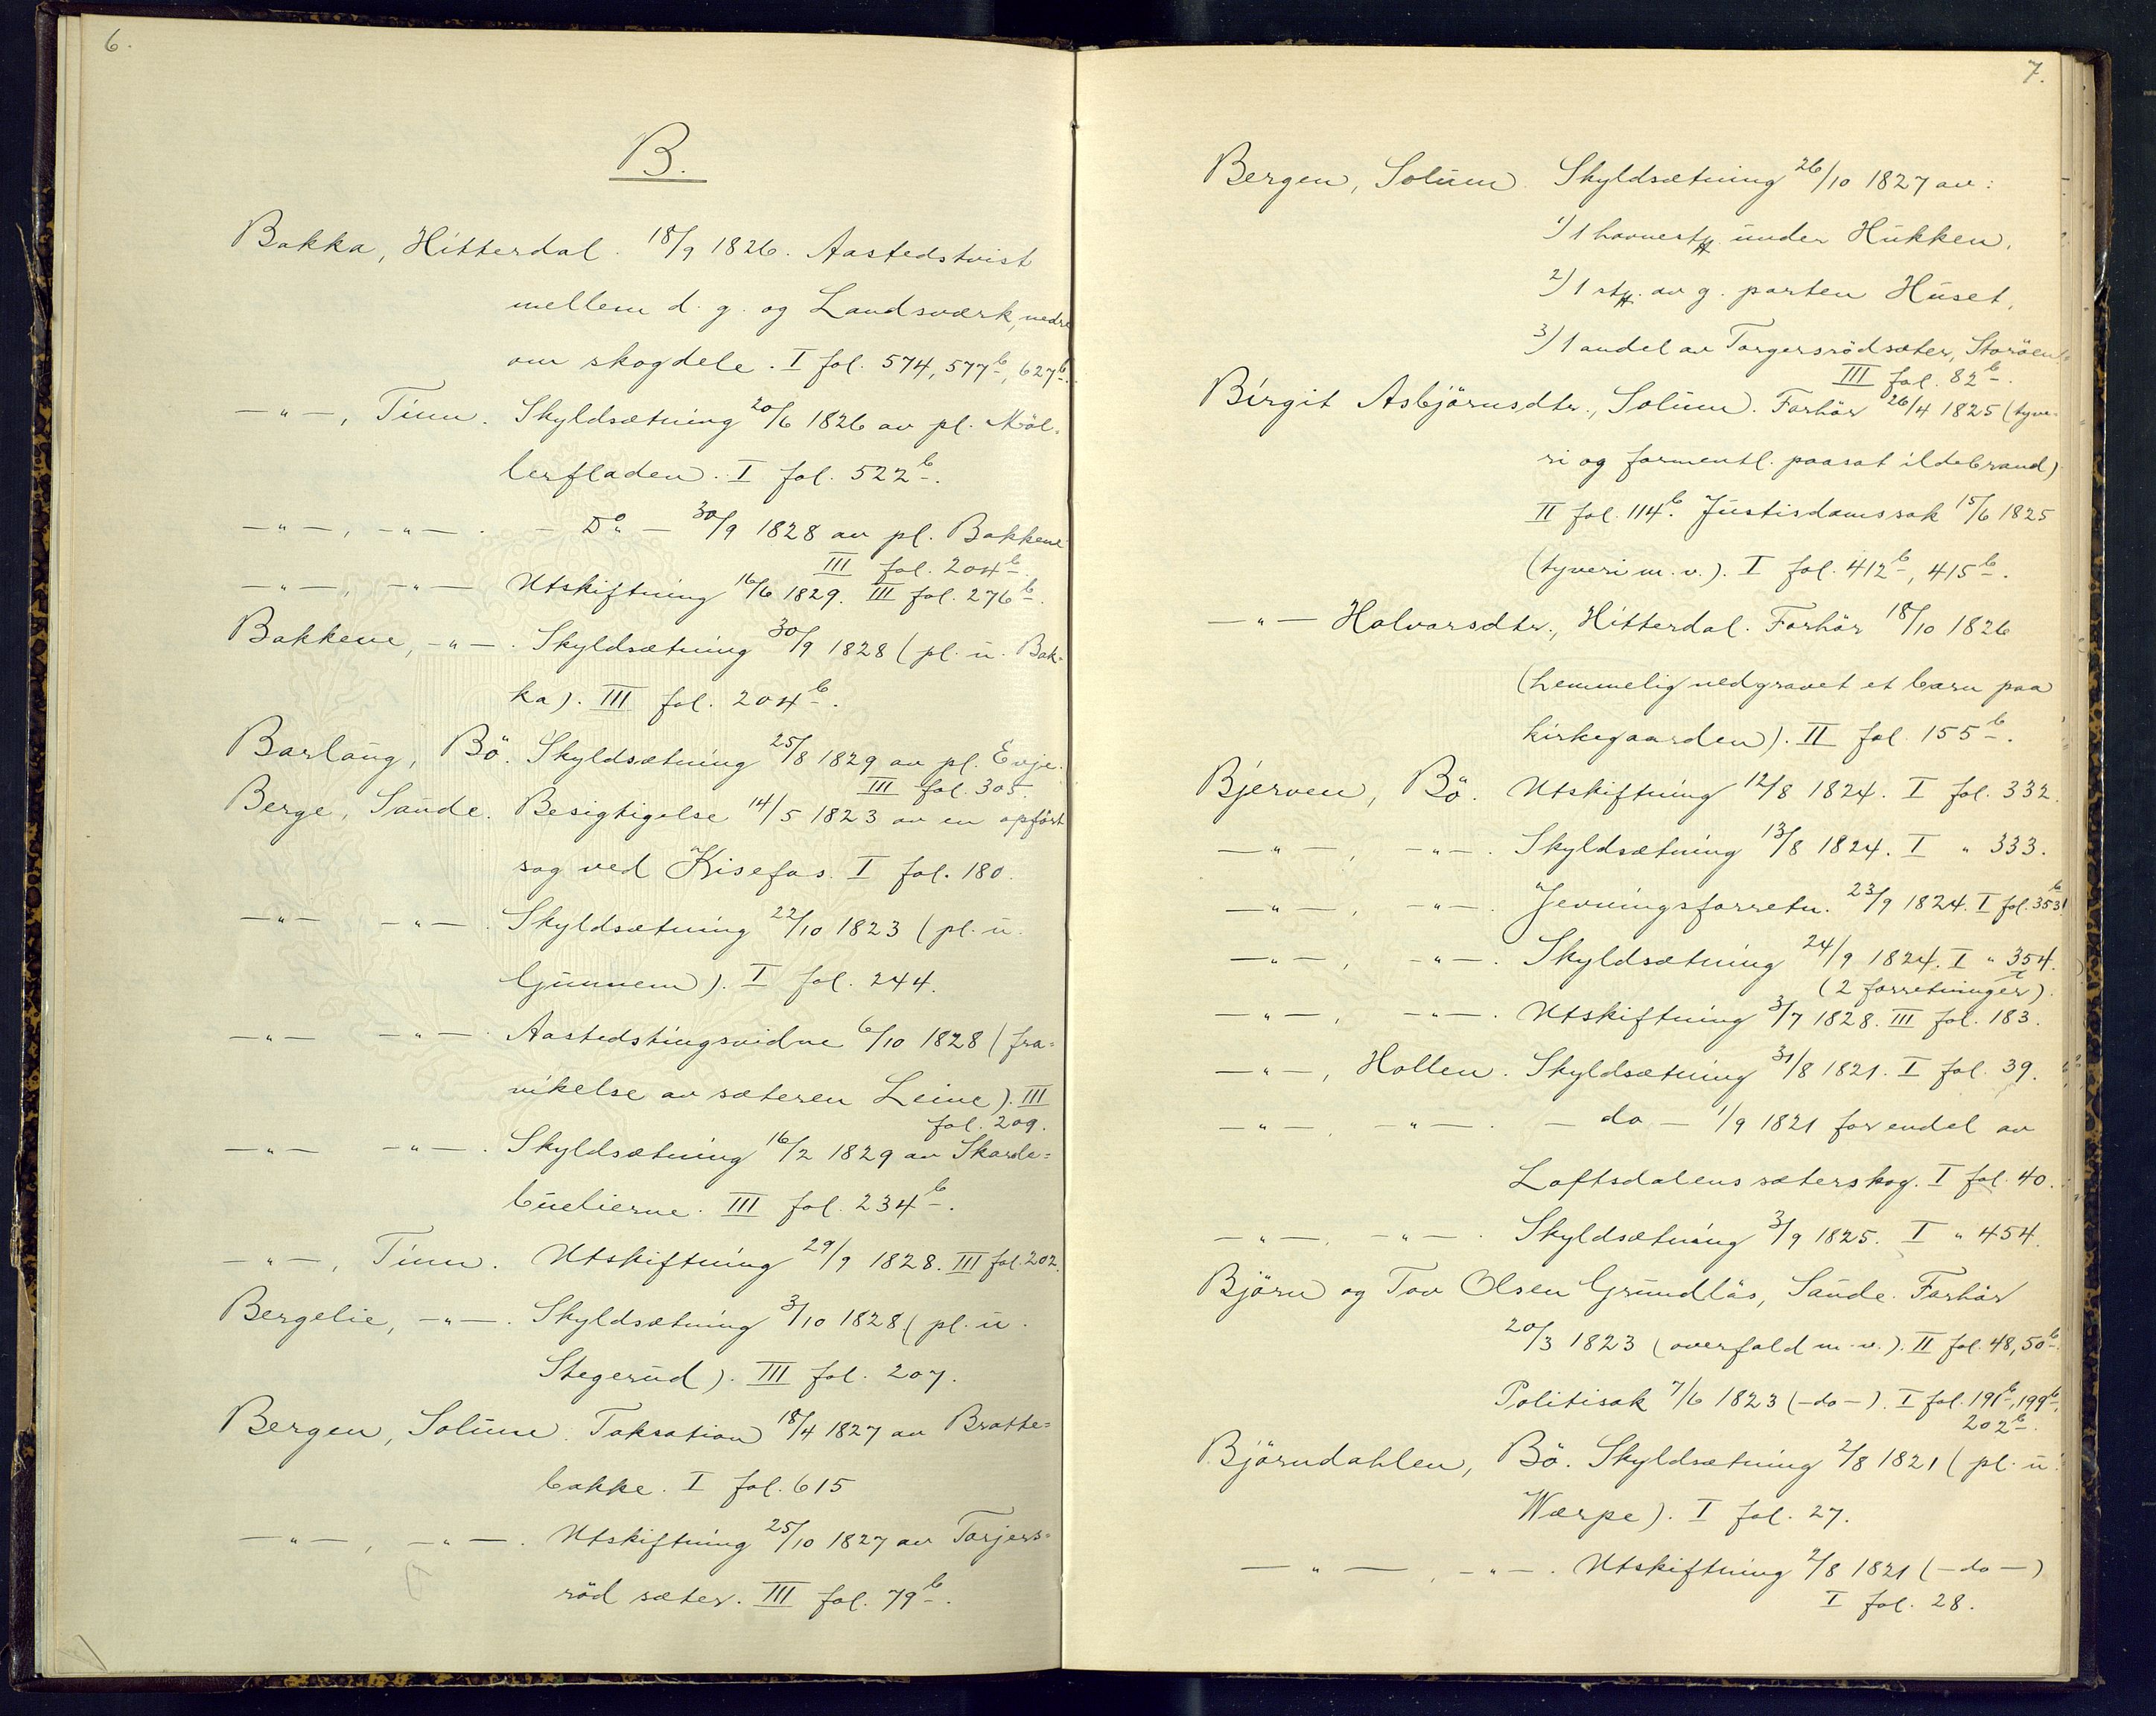 6.
B.
Bakka, Hitterdal. 18/9 1826. Aastedstvist
mellem d. g. og Landsværk, nedre
om skogdele. I fol. 574, 577b, 627b.
—"—, Tinn. Skyldsætning 20/6 1826 av pl. Möl-
lerfladen. I fol. 522b.
—"—, —"—. — Do — 30/9 1828 av pl. Bakkene
III fol. 204b.
—"—, —"— Utskiftning 16/6 1829. III fol. 276b.
Bakkene, —"—. Skyldsætning 30/9 1828 (pl. u. Bak-
ka). III fol. 204b.
Barlaug, Bö. Skyldsætning 25/8 1829 av pl. Evje.
III fol. 305.
Berge, Saude. Besigtigelse 14/5 1823 av en opfört
sag ved Kisefos. I fol. 180.
—"— —"—. Skyldsætning 22/10 1823 (pl. u.
Gunnem). I fol. 244.
—"— —"—. Aastedstingsvidne 6/10 1828 (fra-
vikelse av sæteren Leine). III
fol. 209.
—"— —"—. Skyldsætning 16/2 1829 av Skarde-
buelierne. III fol. 234b.
—"—, Tinn. Utskiftning 29/9 1828. III fol. 202.
Bergelie, —"—. Skyldsætning 3/10 1828 (pl. u.
Stegerud). III fol. 207.
Bergen, Solum. Taksation 18/4 1827 av Bratte-
bakke. I fol. 615
—"—, —"—. Utskiftning 25/10 1827 av Torjers-
röd sæter. III fol. 79b.
7.
Bergen, Solum. Skyldsætning 26/10 1827 av:
1) 1 havnestk. under Hukken,
2) 1 stk. av g. parten Huset,
3) 1 andel av Torgersrödsæter, Storöen.
III fol. 82b.
Birgit Asbjörnsdtr., Solum. Forhör 26/4 1825 (tyve-
ri og formentl. paasat ildebrand)
II fol. 114b. Justisdomssak 15/6 1825
(tyveri m. v.). I fol. 412b, 415b.
—"— Halvorsdtr., Hitterdal. Forhör 18/10 1826
(hemmelig nedgravet et barn paa
kirkegaarden). II fol. 155b.
Bjerven, Bö. Utskiftning 12/8 1824. I fol. 332.
—"—, —"—. Skyldsætning 13/8 1824. I " 333.
—"—, —"—. Jevningsforretn. 23/9 1824. I fol. 353b
—"—, —"—. Skyldsætning 24/9 1824. I " 354.
(2 forretninger).
—"—, —"—. Utskiftning 3/7 1828. III fol. 183.
—"—, Hollen. Skyldsætning 31/8 1821. I fol. 39.
—"—, —"—. — do — 1/9 1821 for endel av
Loftsdalens sæterskog. I fol. 40.
—"—, —"—. Skyldsætning 3/9 1825. I " 454.
Björn og Tov Olsen Grundlös, Saude. Forhör
20/3 1823 (overfald m. v.). II fol. 48, 50b.
Politisak 7/6 1823 (—do—). I fol. 191b, 199b,
202b.
Björndahlen, Bö. Skyldsætning 2/8 1821 (pl. u.
Wærpe). I fol. 27.
—"—, —"—. Utskiftning 2/8 1821 (—do—)
I fol. 28.